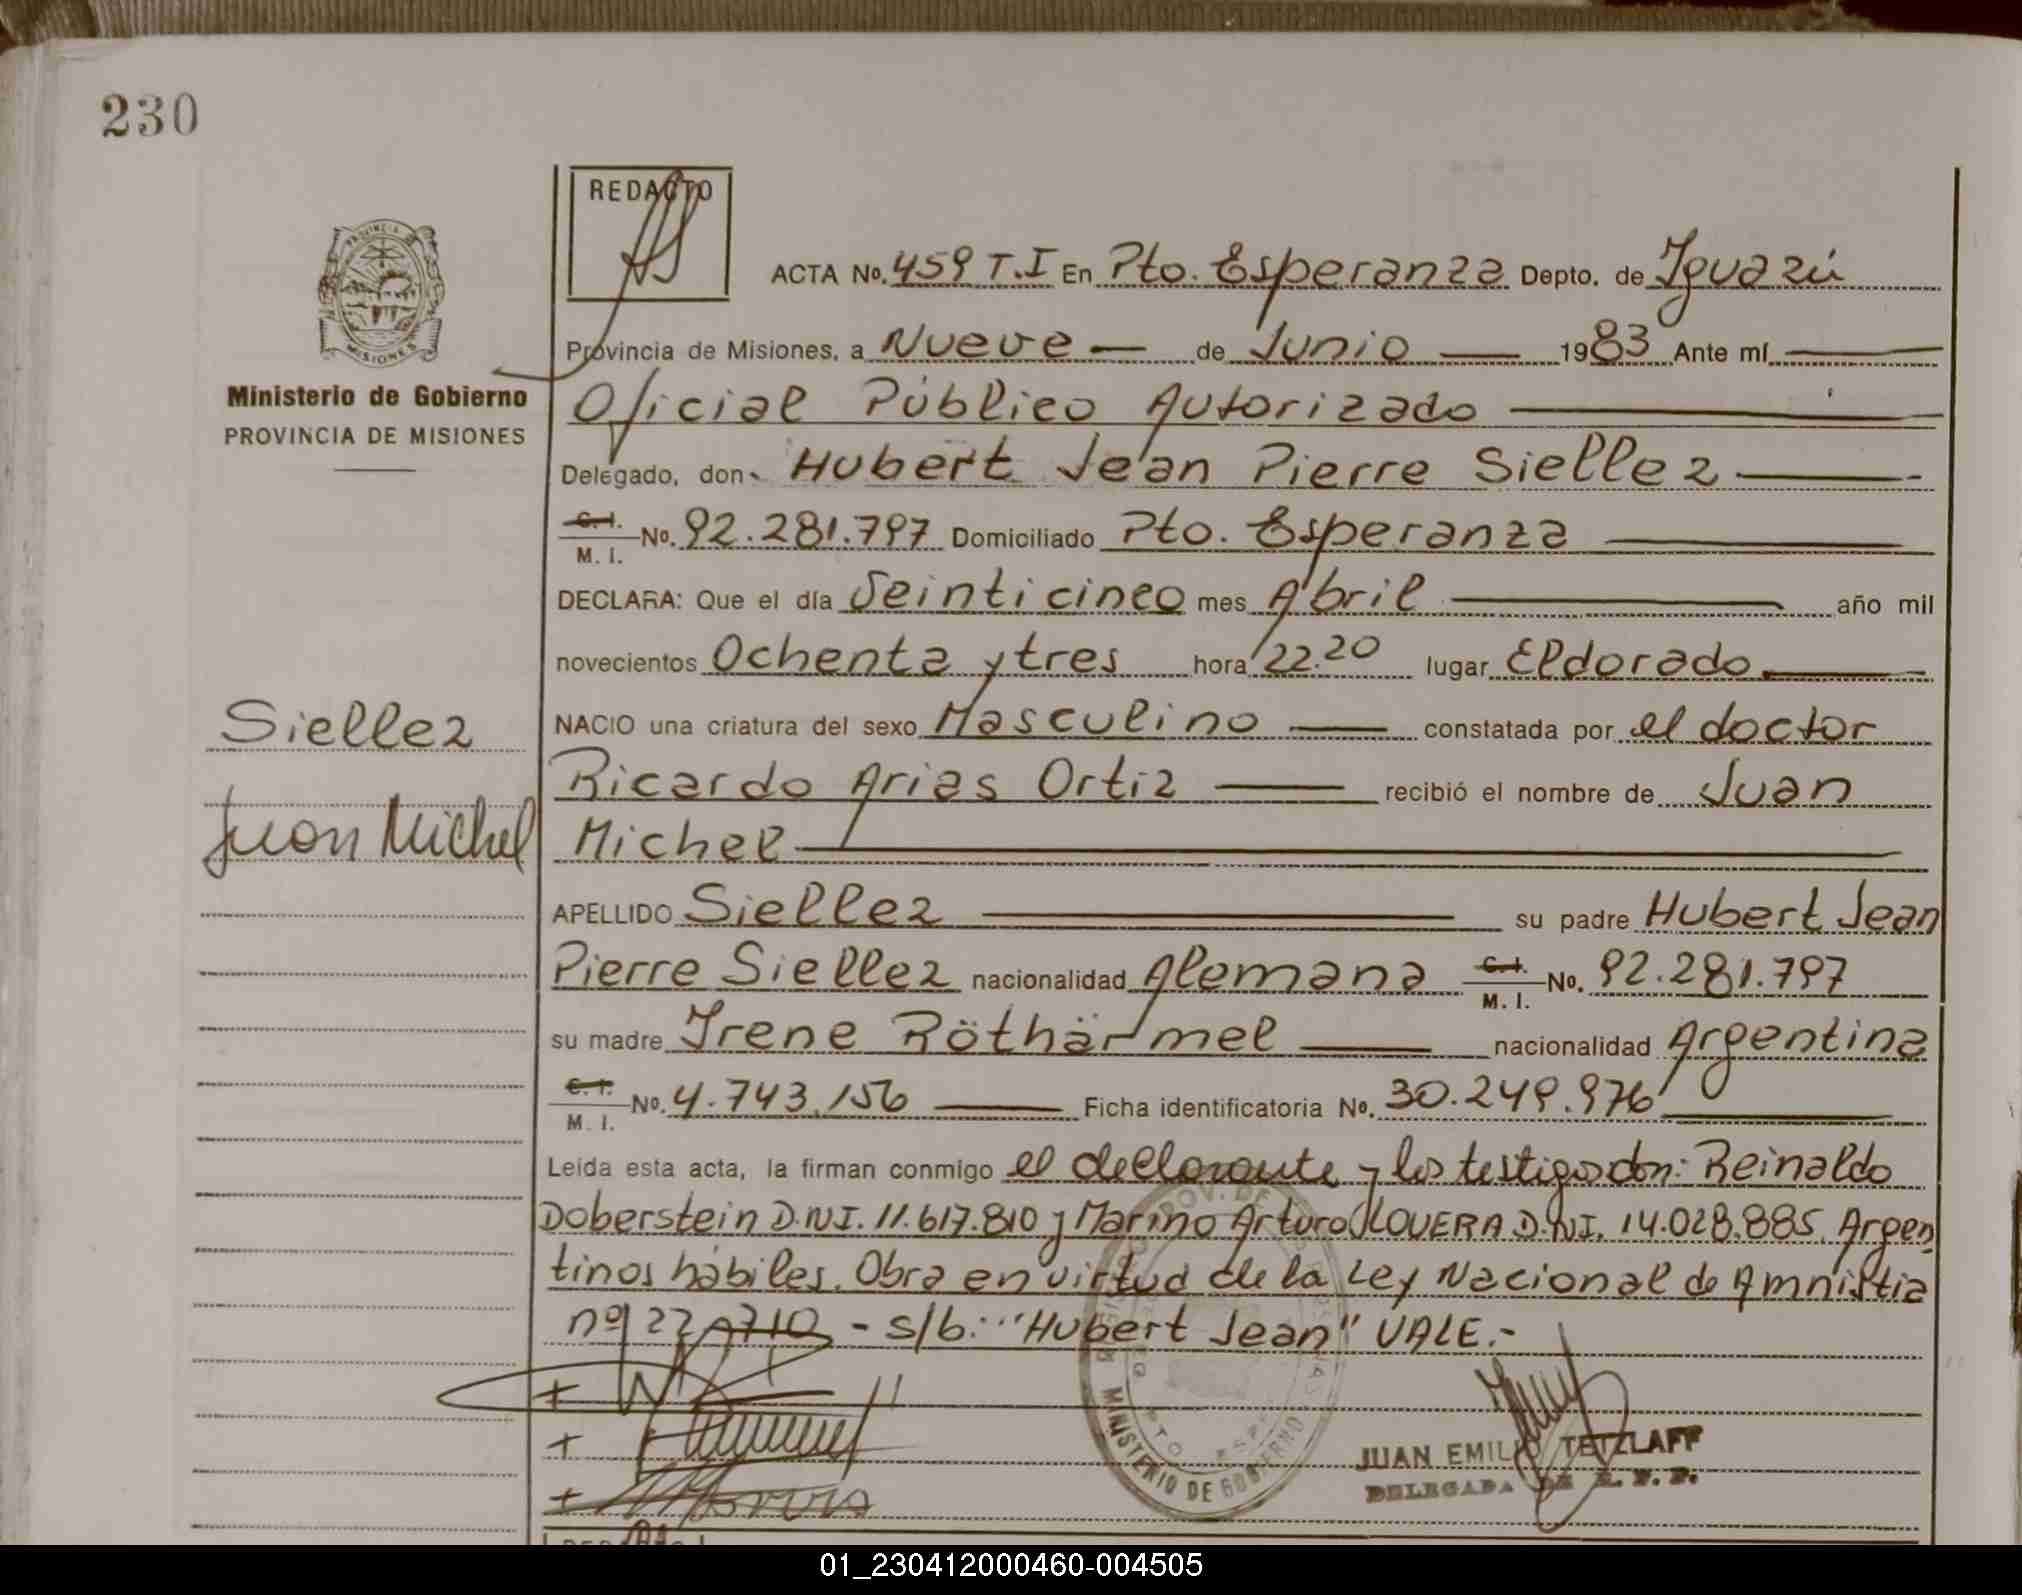 230
REDACTO
ACTA No. 459 T.I En Pto. Esperanza Depto. de Iguazú
Provincia de Misiones, a Nueve — de Junio — 1983 Ante mí —
Ministerio de Gobierno
PROVINCIA DE MISIONES
MISIONES
Oficial Público Autorizado
Delegado, don Hubert Jean Pierre Siellez
C. I.
M. I. No. 92.281.797 Domiciliado Pto. Esperanza
DECLARA: Que el día Veinticinco mes Abril año mil
novecientos Ochenta y tres hora 22.20 lugar Eldorado
NACIO una criatura del sexo Masculino constatada por el doctor
Siellez
Ricardo Arias Ortiz recibió el nombre de Juan
Juan Michel
Michel
APELLIDO Siellez su padre Hubert Jean
Pierre Siellez nacionalidad Alemana C. I. M. I. No. 92.281.797
su madre Irene Röthärmel nacionalidad Argentina
C. I.
M. I. No. 4.743.156 Ficha identificatoria No. 30.249.976
Leída esta acta, la firman conmigo el declarante y los testigos don: Reinaldo
Doberstein D.N.I. 11.617.810 y Marino Arturo LOVERA D.N.I. 14.028.885, Argen
tinos hábiles. Obra en virtud de la Ley Nacional de Amnistia
nº 22.710 - s/b: "Hubert Jean" VALE.-
MINISTERIO DE GOBIERNO
JUAN EMILIO TETZLAFF
DELEGADA DE R. P. P.
01_230412000460-004505